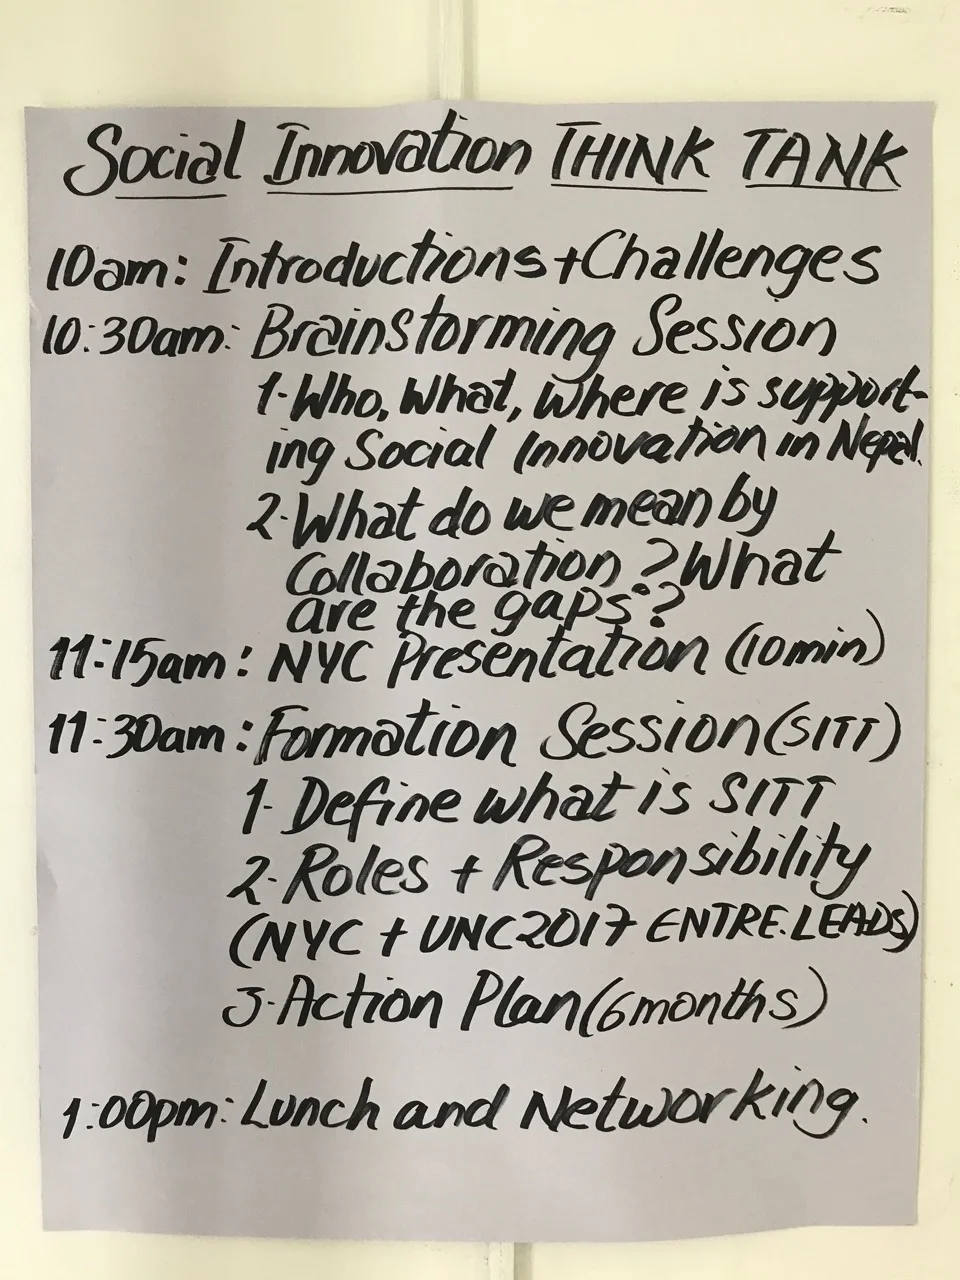 Social Innovation THINK TANK
10am: Introductions+Challenges
10:30am: Brainstorming Session
1-Who, What, Where is support-
ing Social Innovation in Nepal.
2-What do we mean by
Collaboration? What
are the gaps?
11:15am: NYC Presentation (10min)
11:30am: Formation Session (SITT)
1- Define what is SITT
2- Roles + Responsibility
(NYC + UNC2017 ENTRE. LEADS)
3-Action Plan (6months)
1:00pm: Lunch and Networking.